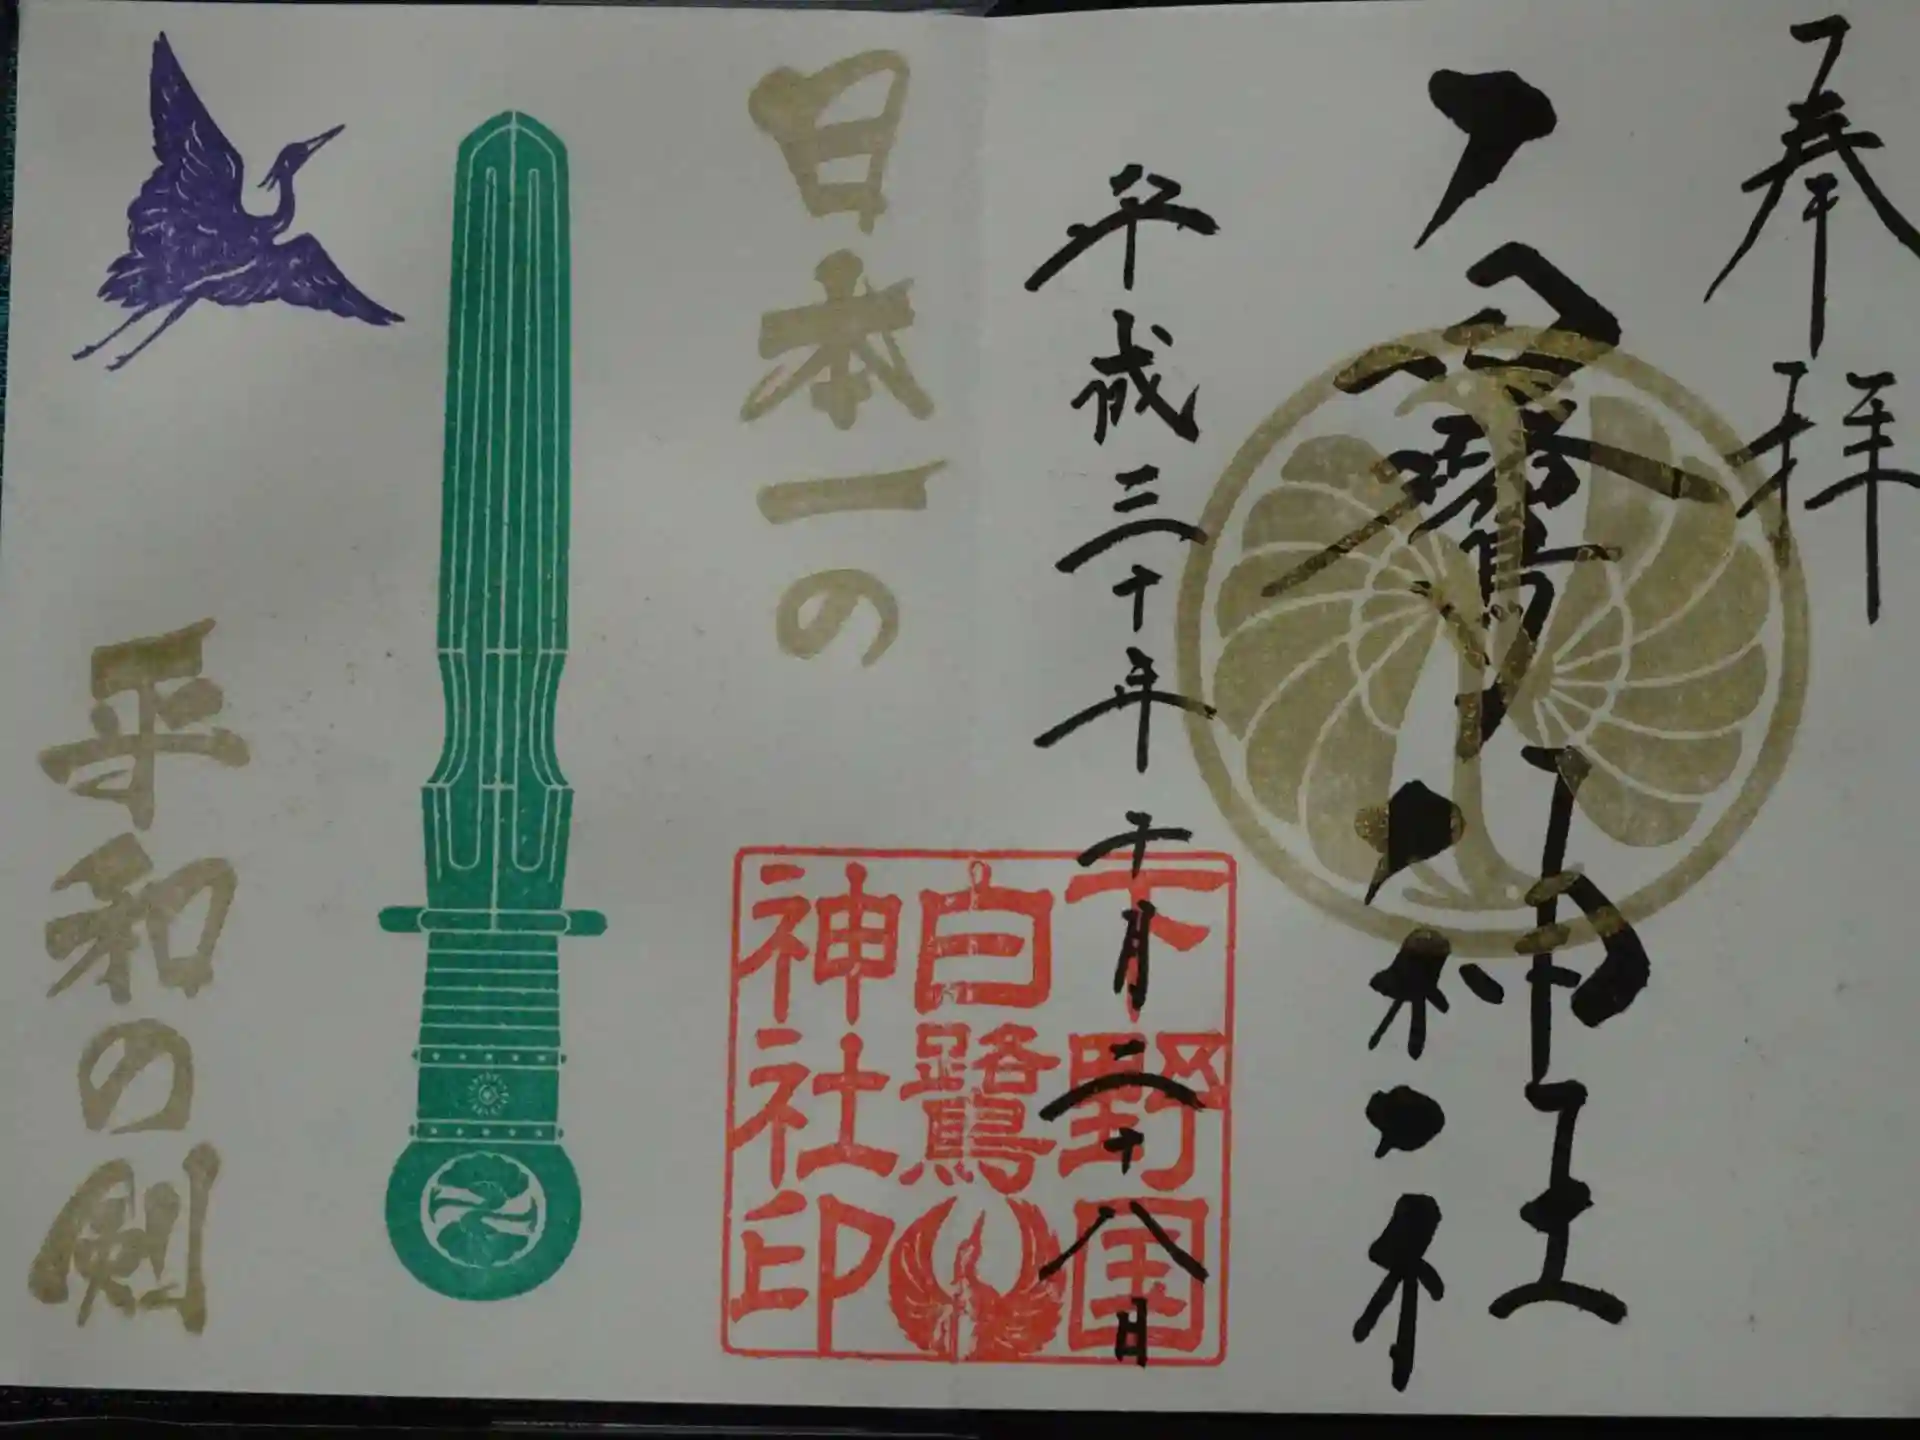 奉拝
白鷺神社
平成三十年十月二十八日
下野国
白鷺
神社印
日本一の
平和の剣